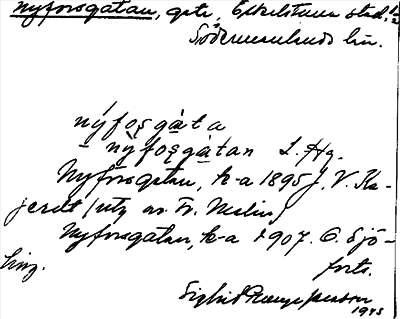 Nyforsgatan, gata, Eskilstuna stad,
Södermanlands län.
nýfoşgàta
– nỳfoşgàtan L. Hg.
Nyforsgatan, k-a 1895 J. V. Ka-
jerdt (utg. av Fr. Melin)
Nyforsgatan, k-a 1907. C. Sjö-
ling. forts.
Sigbrid Runge Persson
1945